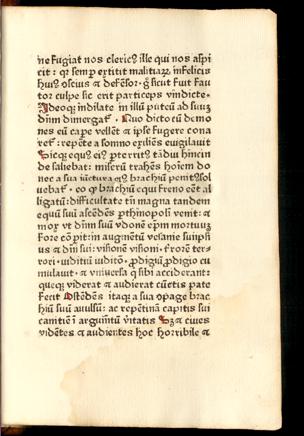 ne fugiat nos clericꝰ ille qui nos aspi
cit : qꝛ semꝑ extitit malitiaꝝ infelicis
huiꝰ ꝯscius ⁊ defẽsor. ꝙ sicut fuit fau
tor culpe sic erit particeps vindicte.
Ideoqꝫ indilate in illũ puteũ ad suuꝫ
dñm dimergat᷑. Quo dicto cũ demo
nes eũ cape vellẽt ⁊ ipse fugere cona
ret᷑: repẽte a somno exꝑiẽs euigilauit
Sicqꝫ equꝰ eiꝰ ꝑterritꝰ tã diu hincin
de saliebat : miserũ trahẽs hoĩem do
nec a sua iũctura qꝰ brachiũ penitꝰ sol
uebat᷑. eo ꝙ brachiũ equi freno eẽt al
ligatũ: difficultate tñ magna tandem
equũ suũ ascẽdẽs ꝑthinopoli venit: ⁊
mox vt dñm suũ vdonẽ epm mortuuꝫ
fore cõꝑit: in augmẽtũ vesanie suip̃ius
us ⁊ dñi sui: visionẽ visioni. frorẽ ter-
rori. iuditiũ iuditõ. ꝓdigiũ ꝓdigio cu
mulauit. ⁊ vniuersa q̃ sibi acciderant:
queqꝫ viderat ⁊ audierat cũctis pate
fecit Ostẽdẽs itaqꝫ a sua ꝯpage brac
hiũ suũ auulsũ: ac repẽtinã capitis sui
canitiẽ ĩ argumẽtũ vitatis Sꝫ ⁊ ciues
vidẽtes ⁊ audientes hoc horribile ⁊